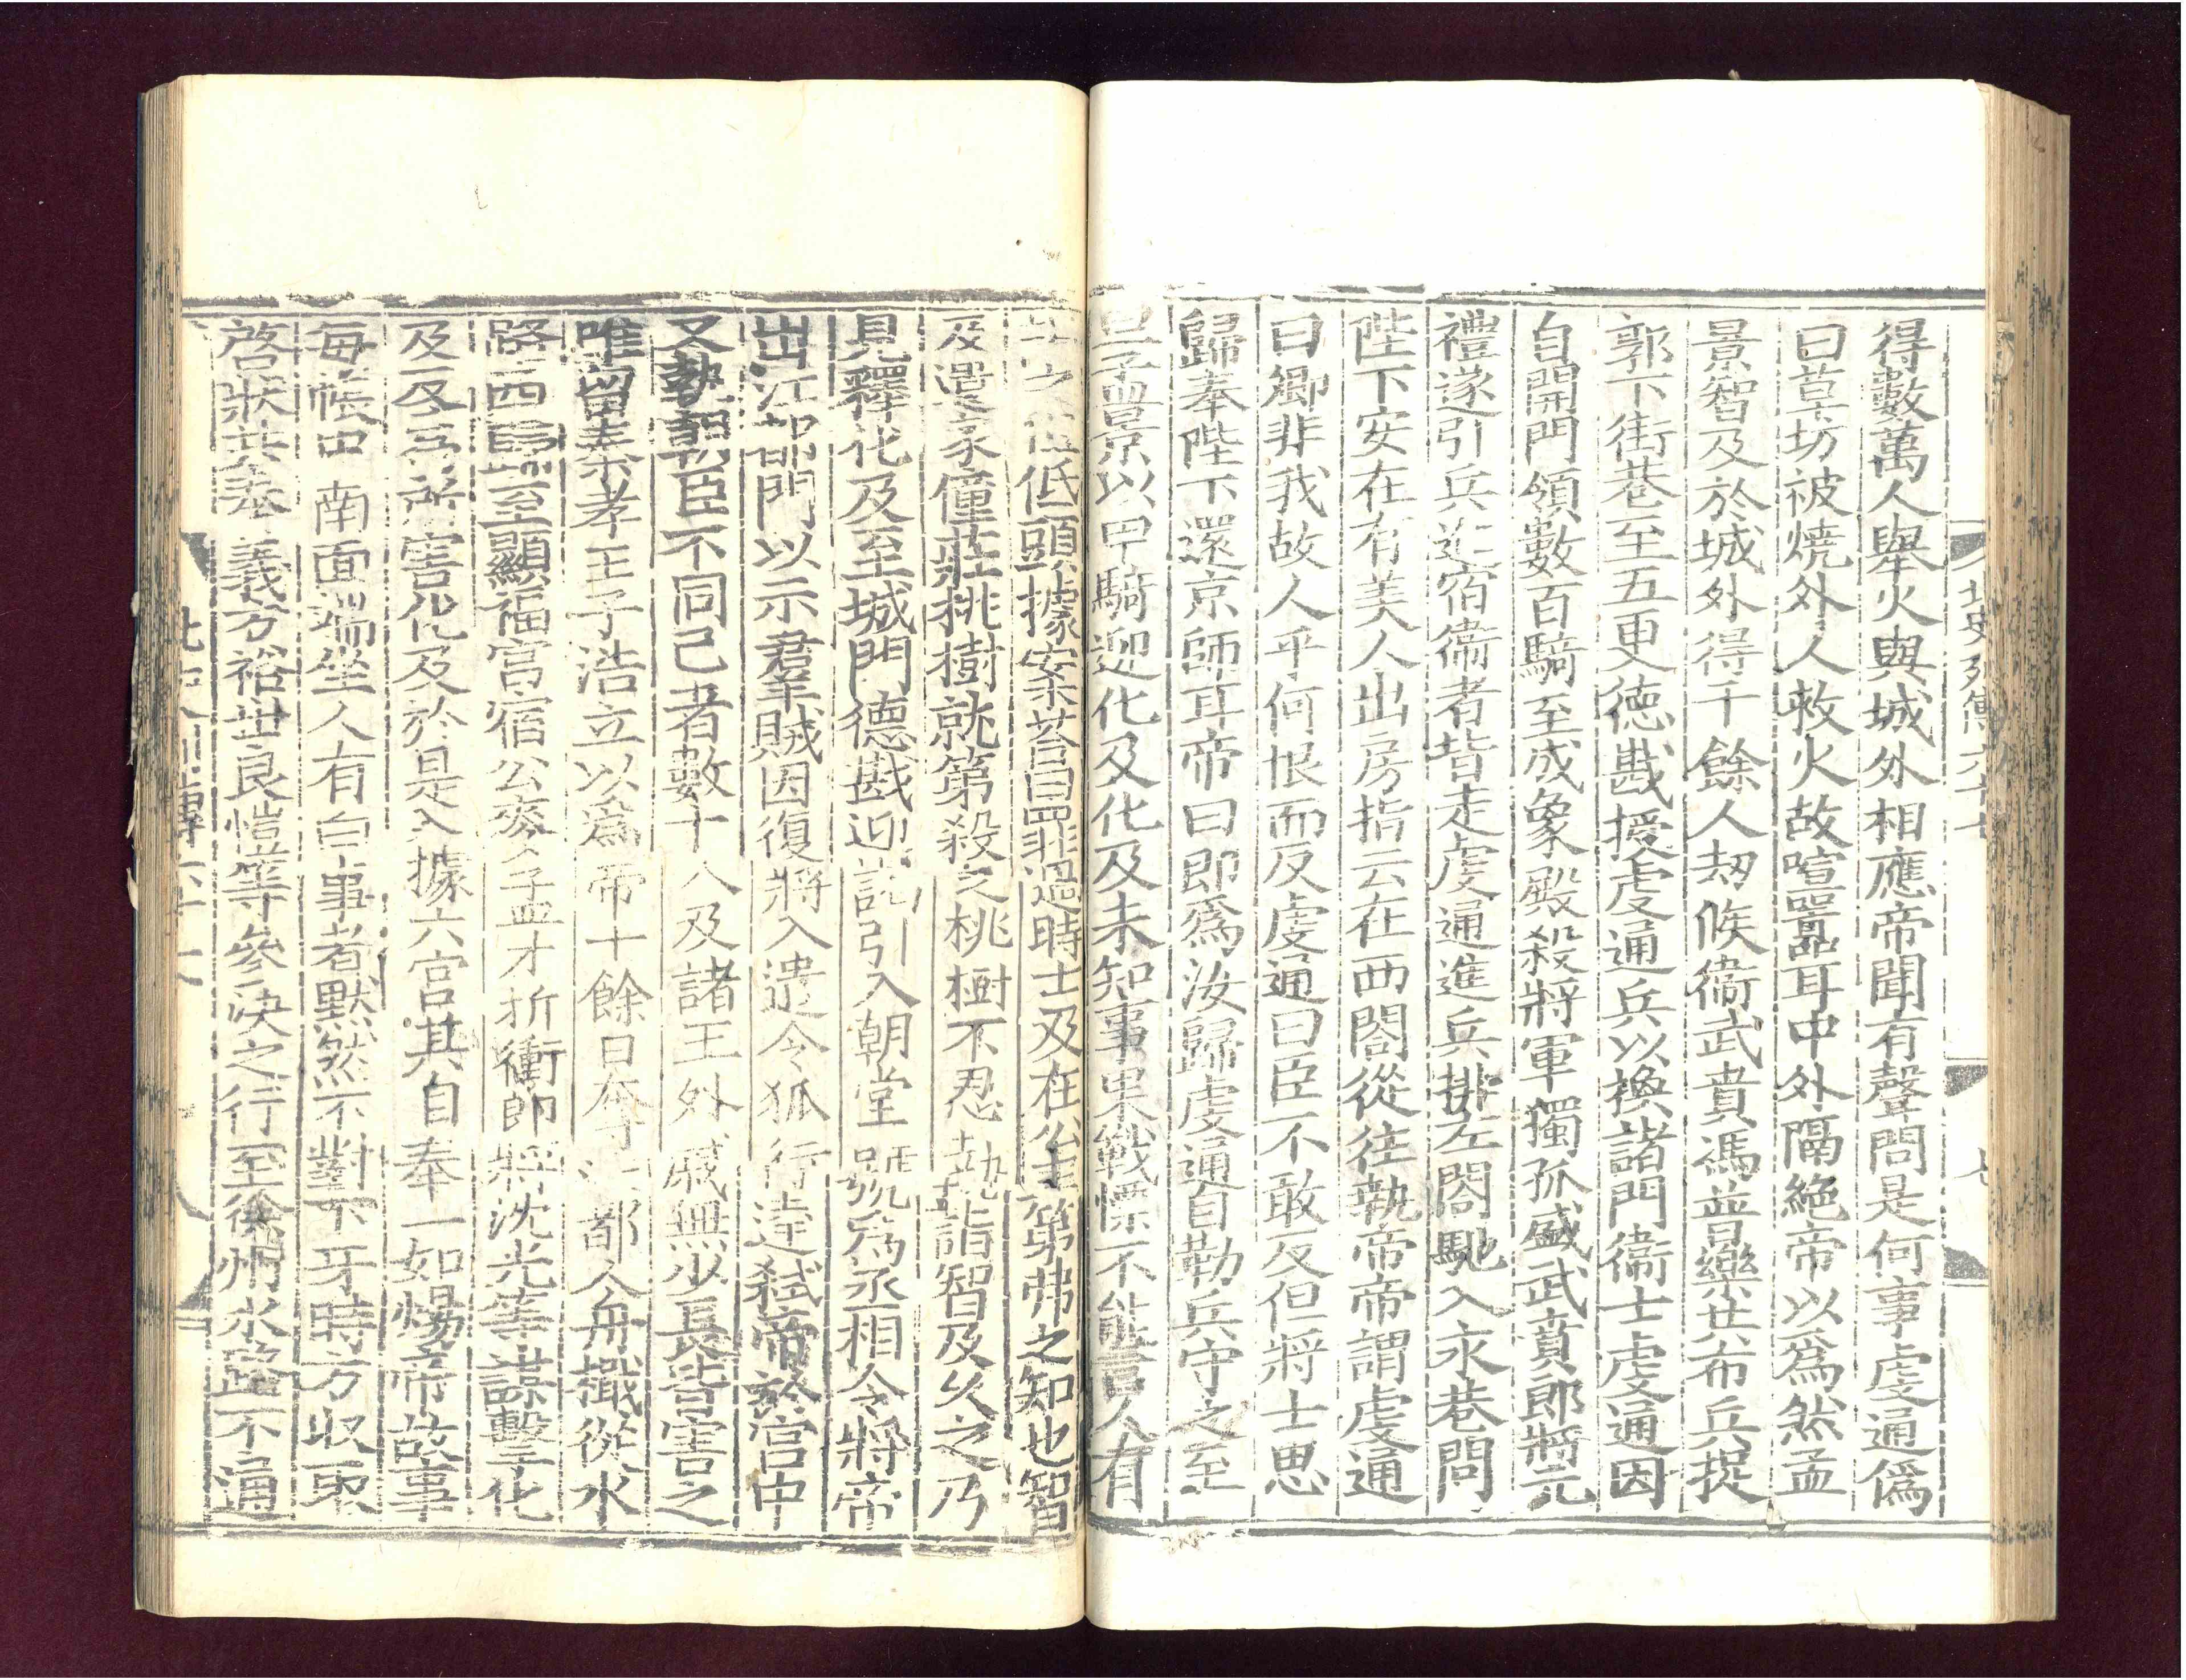 北史列傳六十七
七
得數萬人舉火與城外相應帝聞有聲問是何事虔通僞
曰草坊被燒外人救火故喧囂耳中外隔絶帝以爲然孟
景智及於城外得千餘人刼候衞武賁馮普樂共布兵捉
郭下街巷至五更德戡授虔通兵以換諸門衞士虔通因
自開門領數百騎至成象殿殺將軍獨孤盛武賁郎將元
禮遂引兵進宿衞者皆走虔通進兵排左閤馳入永巷問
陛下安在有美人出房指云在西閤從往執帝帝謂虔通
曰卿非我故人乎何恨而反虔通曰臣不敢反但將士思
歸奉陛下還京師耳帝曰即爲汝歸虔通自勒兵守之至
旦孟景以甲騎迎化及化及未知事果戰慄不能言人有
之但低頭據案荅曰罪過時士及在公主第弗之知也智
及遣家僮莊桃樹就第殺之桃樹不忍執詣智及久之乃
見釋化及至城門德戡迎謁引入朝堂號爲丞相令將帝
出江都門以示羣賊因復將入遣令狐行達弒帝於宮中
又執朝臣不同己者數十人及諸王外戚無少長皆害之
唯留秦孝王子浩立以爲帝十餘日奪江都人舟檝從水
路西歸至顯福宮宿公麥孟才折衝郎將沈光等謀擊化
及反爲所害化及於是入據六宮其自奉一如煬帝故事
每帳中南面端坐人有白事者默然不對下牙時方收取
啓狀共奉義方裕世良愷等參決之行至徐州水路不通
北史列傳六十七